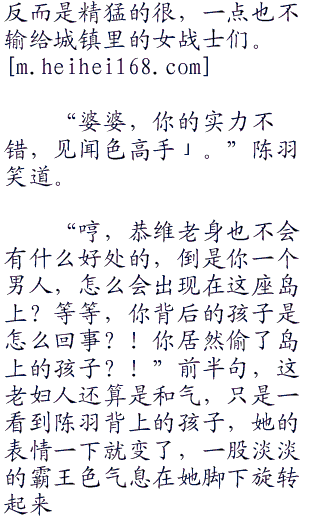 反而是精猛的很，一点也不
输给城镇里的女战士们。
[m.heihei168.com]
“婆婆，你的实力不
错，见闻色高手」。”陈羽
笑道。
“哼，恭维老身也不会
有什么好处的，倒是你一个
男人，怎么会出现在这座岛
上？等等，你背后的孩子是
怎么回事？！你居然偷了岛
上的孩子？！”前半句，这
老妇人还算是和气，只是一
看到陈羽背上的孩子，她的
表情一下就变了，一股淡淡
的霸王色气息在她脚下旋转
起来